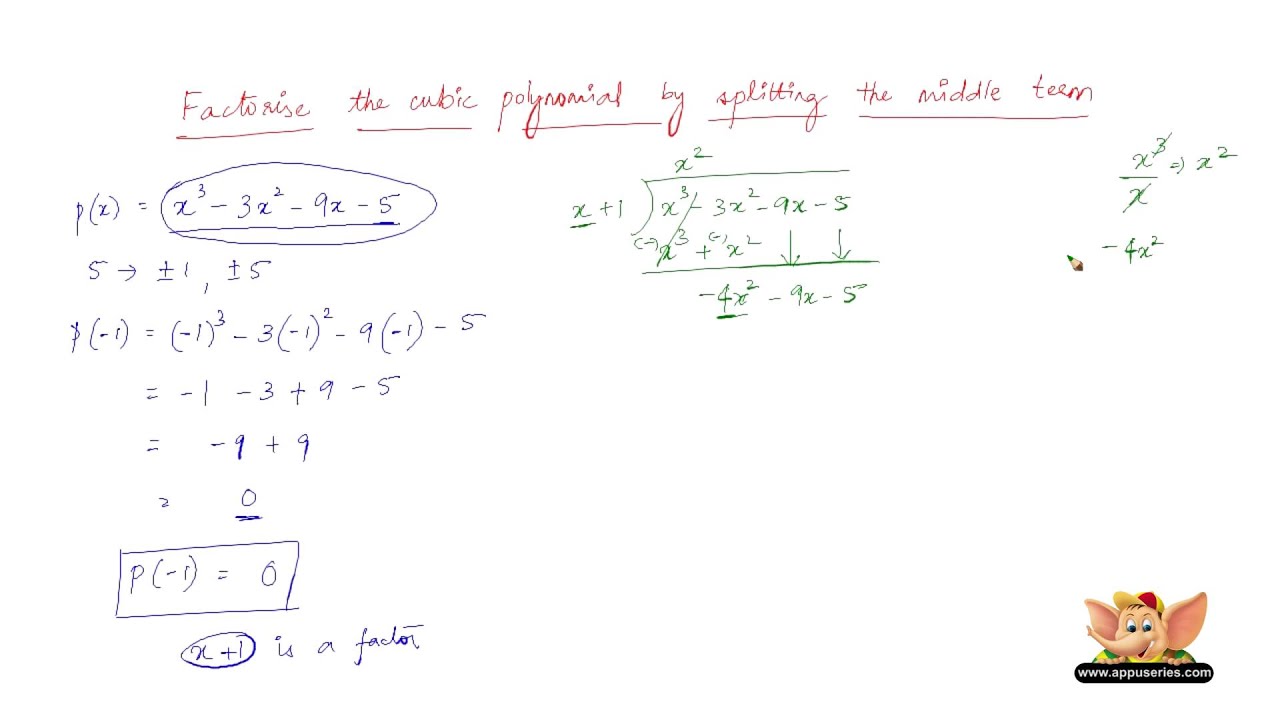 Factorise the cubic polynomial by splitting the middle term
p(x) = x³ - 3x² - 9x - 5
5 → ±1, ±5
p(-1) = (-1)³ - 3(-1)² - 9(-1) - 5
= -1 - 3 + 9 - 5
= -9 + 9
= 0
p(-1) = 0
x+1 is a factor
x²
x+1 ) x³ - 3x² - 9x - 5
(-)x³ + (-)x²
-4x² - 9x - 5
x³/x ⇒ x²
-4x²
www.appuseries.com